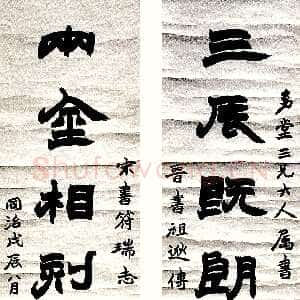 堂三兄大人属書
三辰既朗
晉書祖逖傳
宋書符瑞志
兩金相刻
同治戊辰八月